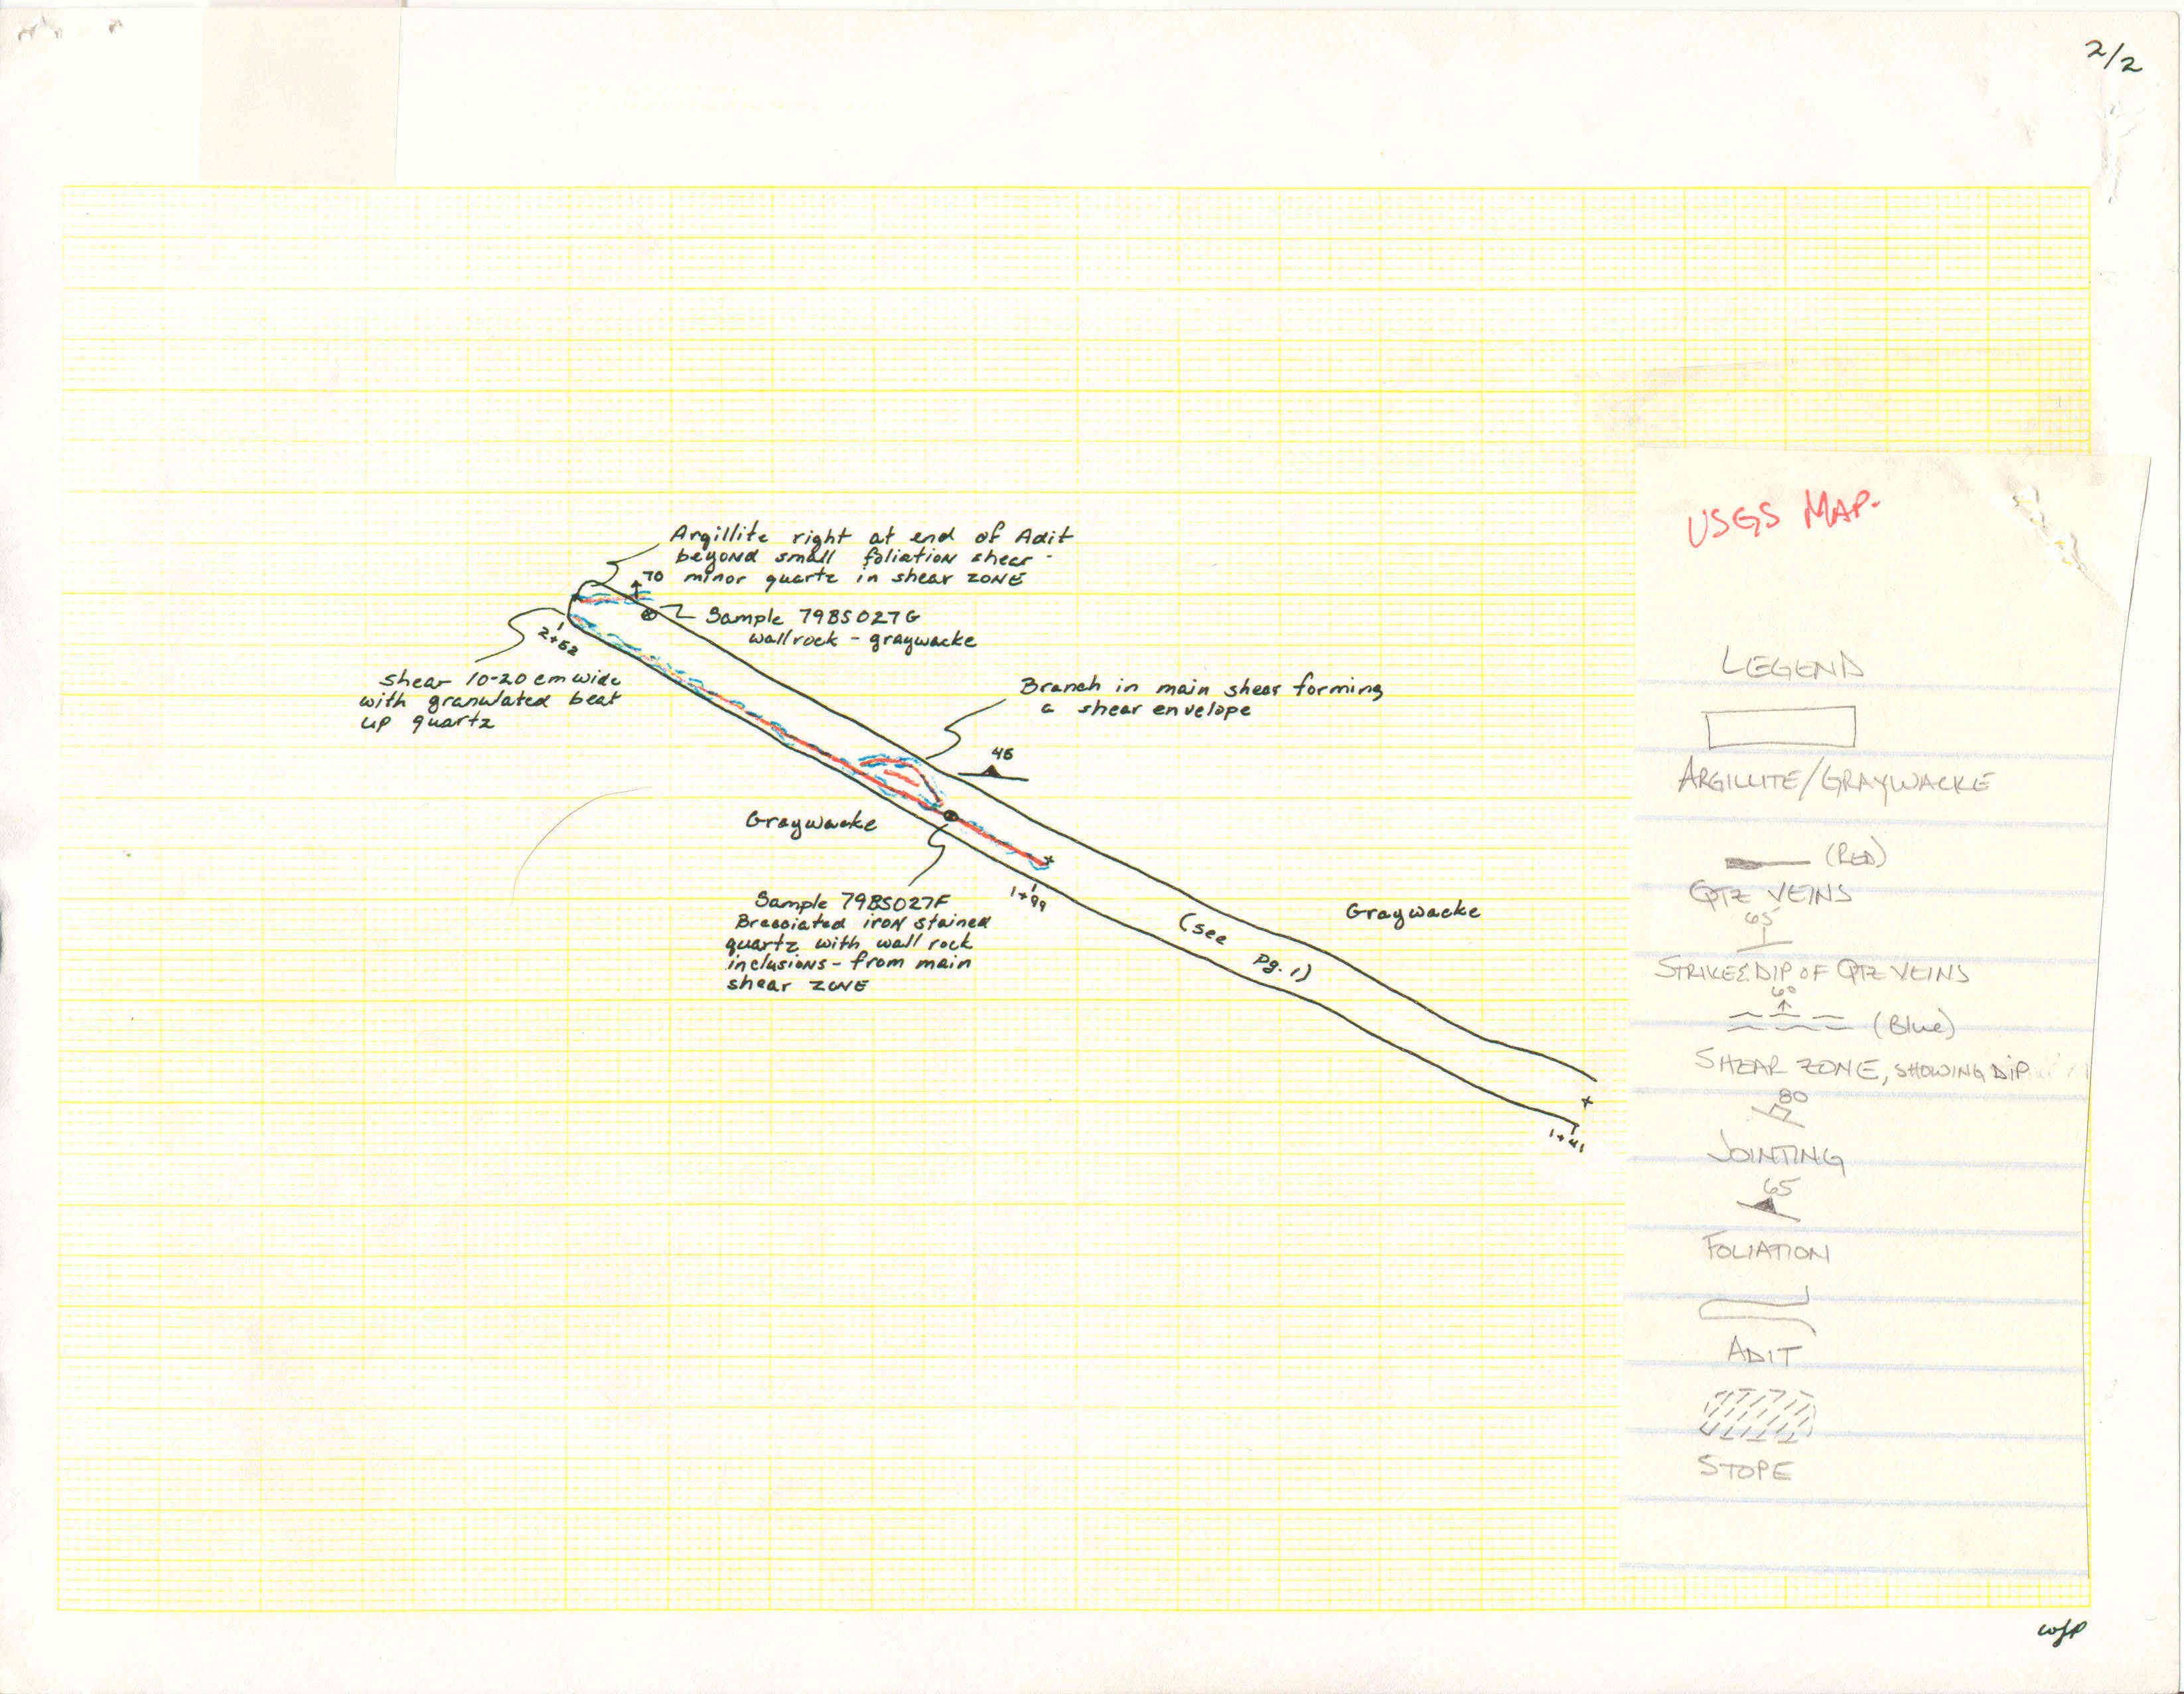 2/2
Argillite right at end of Adit
beyond small foliation shear -
minor quartz in shear ZONE
70
Sample 79BS027G
wallrock - graywacke
2+52
shear 10-20 cm wide
with granulated beat
up quartz
Branch in main shear forming
a shear envelope
45
Graywacke
Sample 79BS027F
Brecciated iron stained
quartz with wall rock
inclusions - from main
shear ZONE
1+99
(see
pg. 1)
Graywacke
1+41
USGS MAP.
LEGEND
ARGILLITE/GRAYWACKE
(RED)
QTZ VEINS
65
STRIKE & DIP OF QTZ VEINS
60
(Blue)
SHEAR ZONE, SHOWING DIP
80
JOINTING
65
FOLIATION
ADIT
STOPE